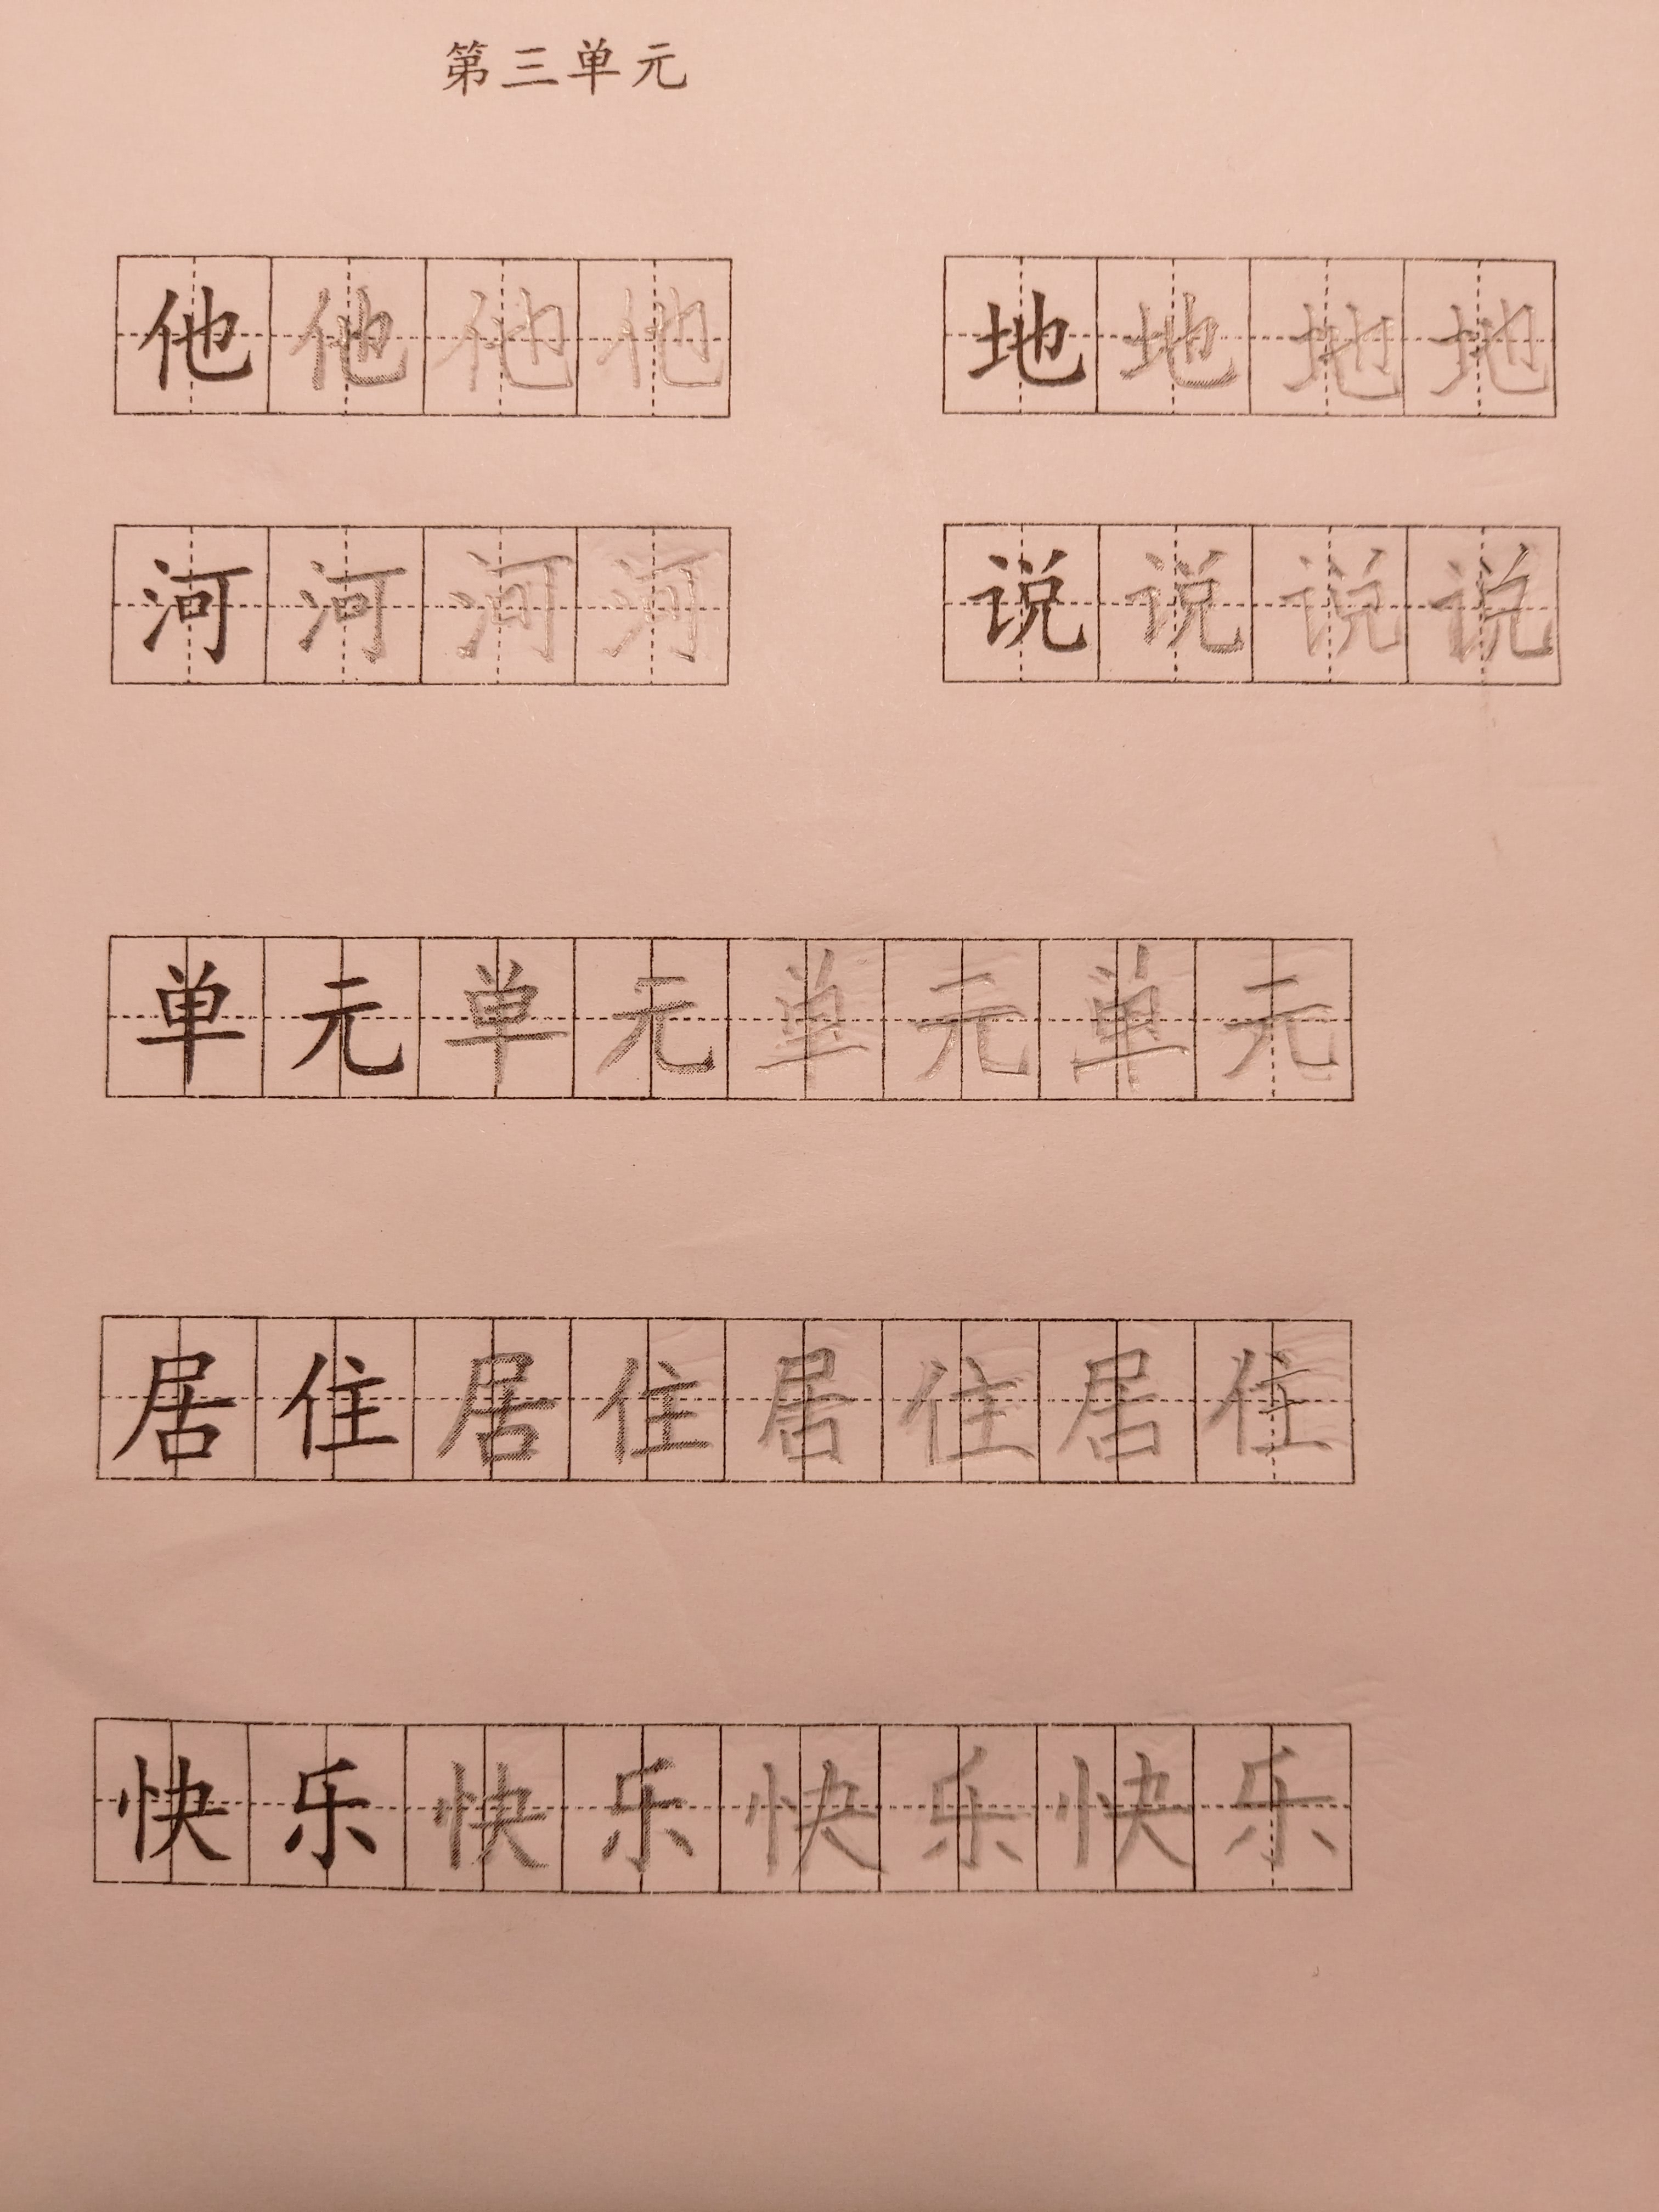 第三单元
他他他他 地地地地
河河河河 说说说说
单元单元单元单元
居住居住居住居住
快乐快乐快乐快乐